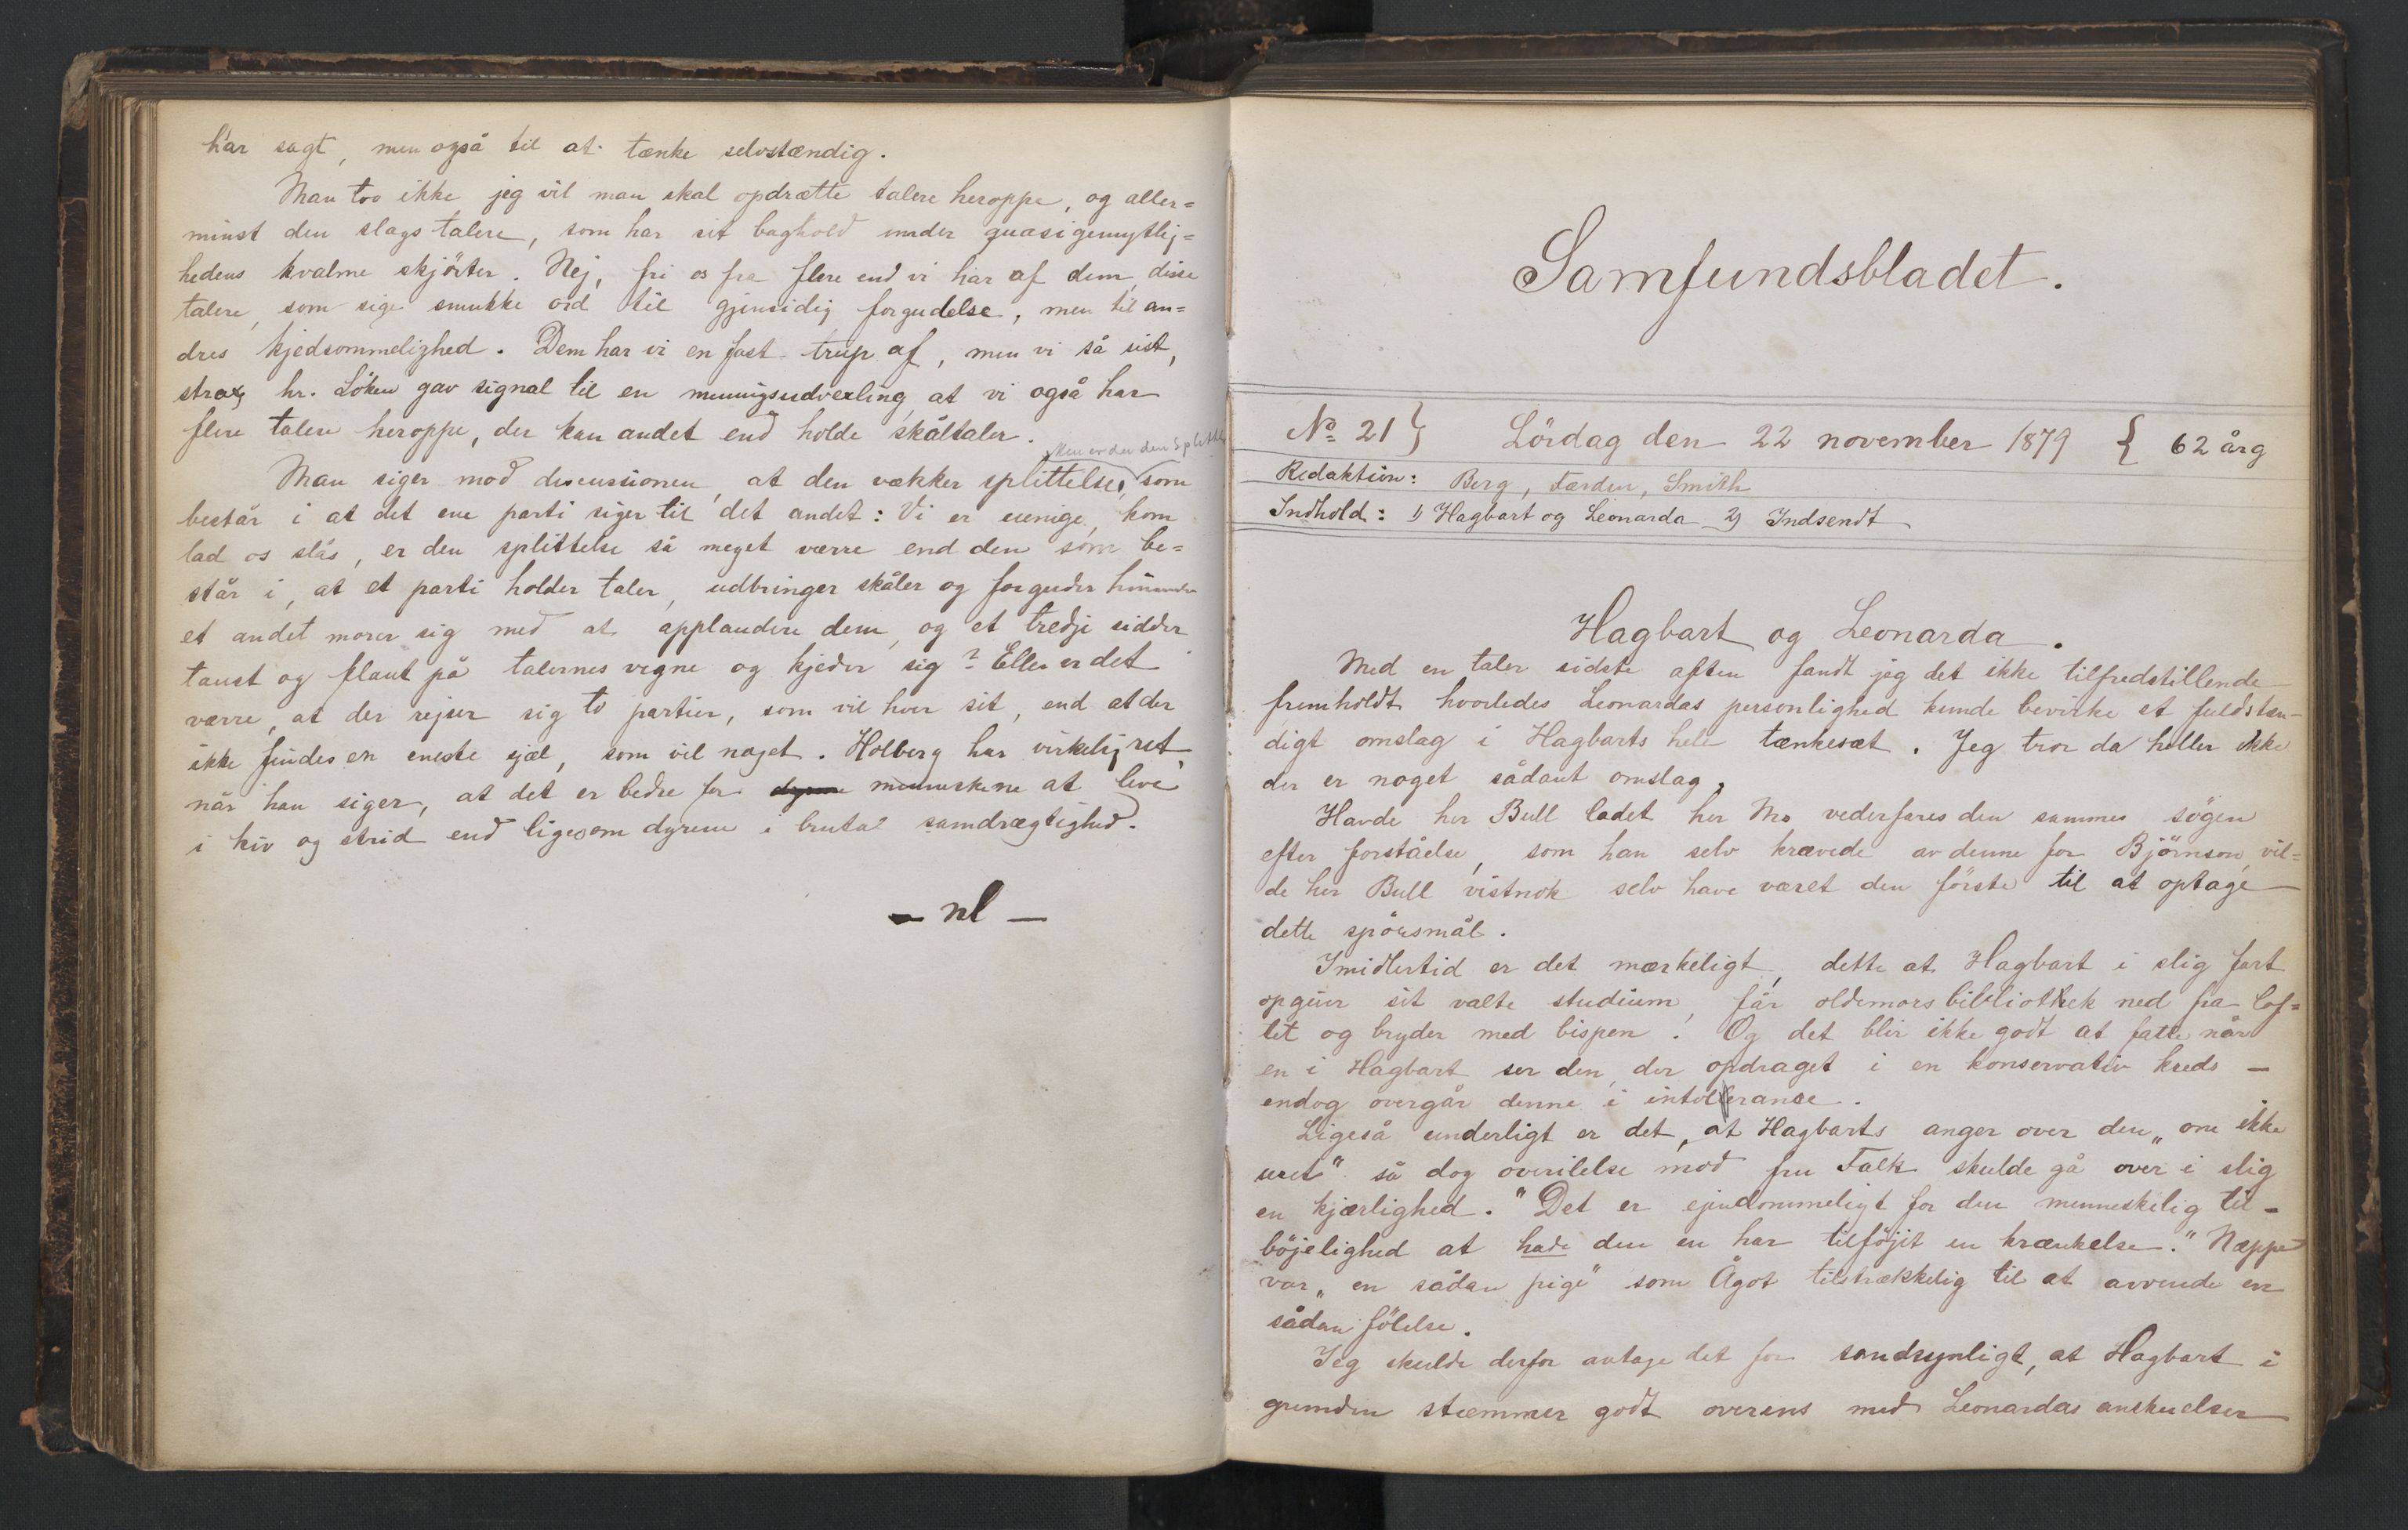 har sagt, men også til at tænke selvstændig.
Man tro ikke jeg vil man skal opdrætte talere heroppe, og aller=
minst den slags talere, som har sit baghold under quasigemytlig=
hedens kvalme skjörter. Nej, fri os fra flere end vi har af dem, disse
talere, som sige smukke ord til gjensidig forgudelse, men til an=
dres kjedsommelighed. Dem har vi en fast trup af, men vi så sist,
strax hr. Löken gav signal til en meningsudvexling, at vi også har
flere talere heroppe, der kan andet end holde skåltaler.
Men er da den splittelse
Man siger mod discussionen, at den vækker splittelse, som
består i at det ene parti siger til det andet: Vi er uenige, kom
lad os slås, er den splittelse så meget værre end den som be=
står i, at et parti holder taler, udbringer skåler og forguder hinanden
et andet morer sig med at applaudere dem, og et tredje sidder
taust og flaut på talernes vegne og kjeder sig? Eller er det
værre, at der rejser sig to partier, som vil hver sit, end at der
ikke findes en eneste sjæl, som vil noget. Holberg har virkelig ret,
når han siger, at det er bedre for dyrene menneskene at leve
i kiv og strid end ligesom dyrene i brutal samdrægtighed.
— nl —
Samfundsbladet.
No 21 } Lördag den 22 november 1879 { 62 årg
Redaktion: Berg, Færden, Smith
Indhold: 1) Hagbart og Leonarda 2) Indsendt
Hagbart og Leonarda.
Med en taler sidste aften fandt jeg det ikke tilfredstillende
fremholdt hvorledes Leonardas personlighed kunde bevirke et fuldstæn-
digt omslag i Hagbarts hele tænkesæt. Jeg tror da heller ikke
der er noget sådant omslag.
Havde her Bull ladet her Mo vederfares den sammes sögen
efter forståelse, som han selv krævede av denne for Björnson, vil=
de her Bull vistnok selv have været den förste til at optage
dette spörsmål.
Imidlertid er det mærkeligt, dette at Hagbart i slig fart
opgiver sit valte studium, får oldemors bibliothek ned fra lof=
tet og bryder med bispen! Og det blir ikke godt at fatte når
en i Hagbart ser den, der opdraget i en konservativ kreds —
endog overgår denne i intollerance.
Ligeså underligt er det, at Hagbarts anger over den „om ikke
uret" så dog overilelse mod fru Falk skulde gå over i slig
en kjærlighed. "Det er ejendommeligt for den menneskelig til-
böjelighed at hade den en har tilföjet en krænkelse." Neppe
var „en sådan pige" som Ågot tilstrækkelig til at avvende en
sådan fölelse.
Jeg skulde derfor antage det for sandsynligt, at Hagbart i
grunden stemmer godt overens med Leonardas anskuelser